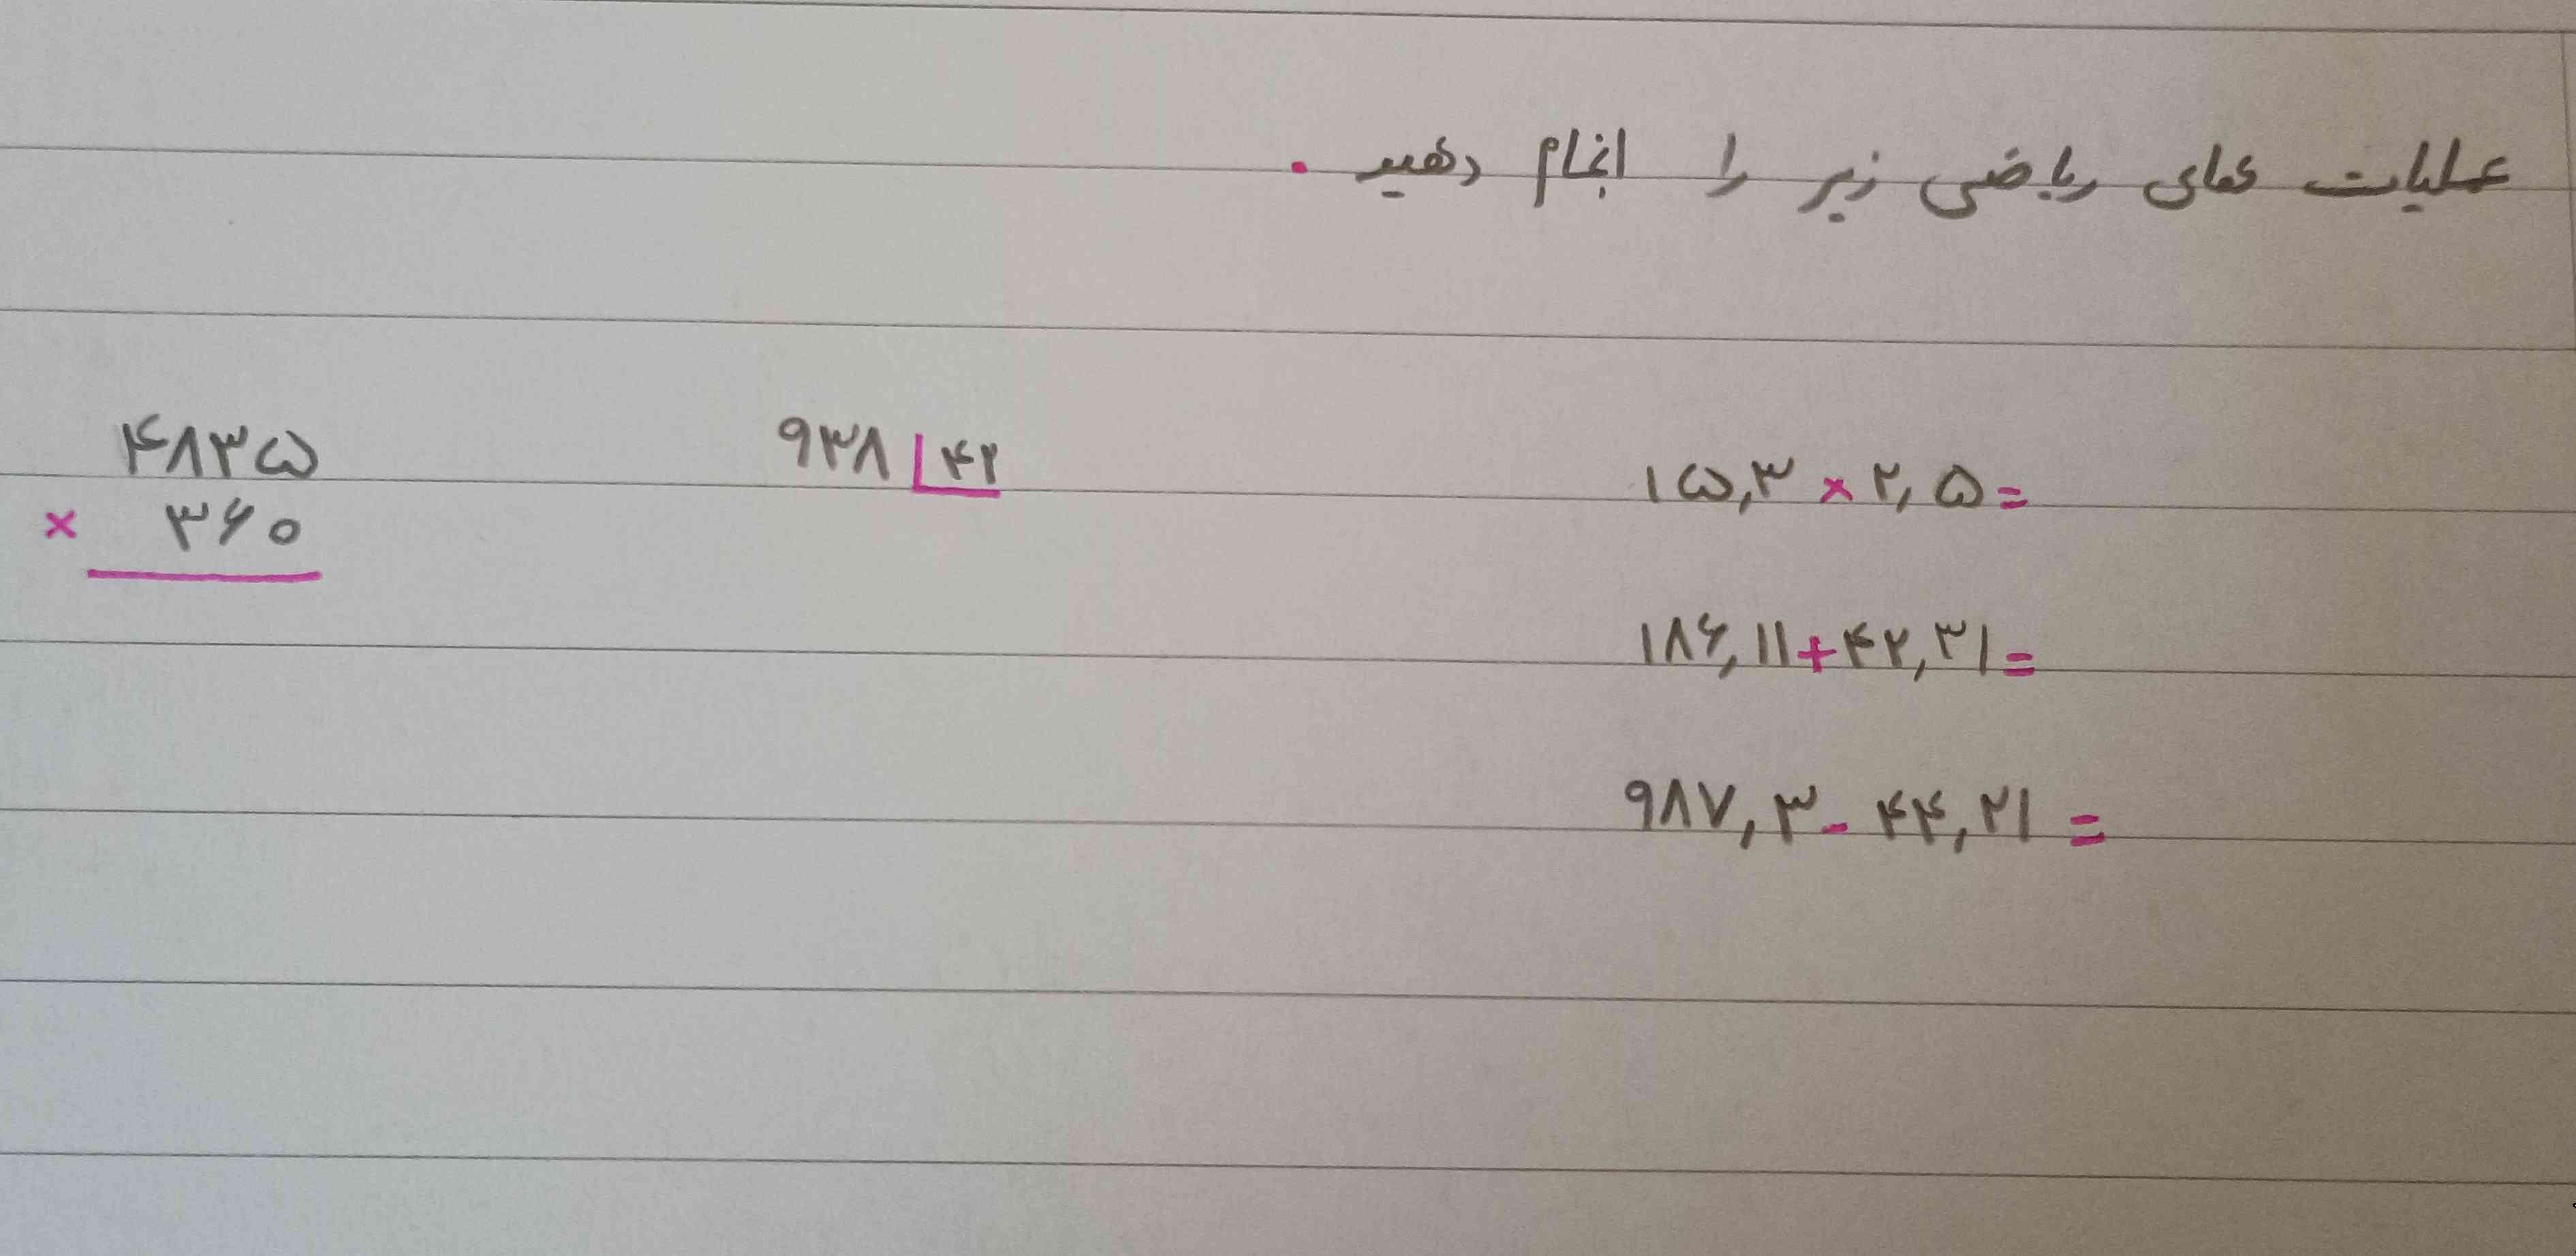 عملیات های ریاضی زیر را انجام دهید.
۱۵,۳ × ۲,۵ =
۱۸۶,۱۱ + ۴۲,۳۱ =
۹۸۷,۳ - ۴۴,۲۱ =
۹۳۸ | ۴۲
۴۸۳۵
× ۳۶۰